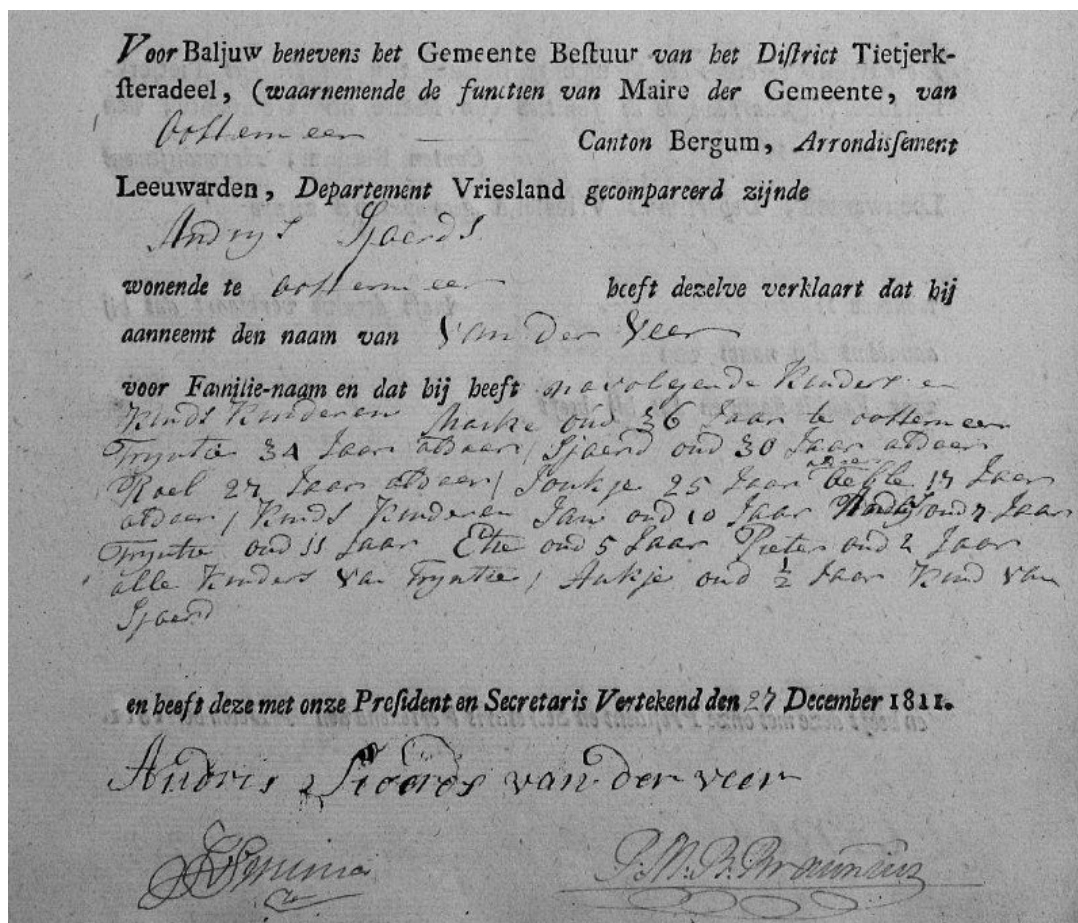 Voor Baljuw benevens het Gemeente Bestuur van het District Tietjerk-
steradeel, (waarnemende de functien van Maire der Gemeente, van
Oostermeer Canton Bergum, Arrondissement
Leeuwarden, Departement Vriesland gecompareerd zijnde
Andrys Sjoerds
wonende te oostermeer heeft dezelve verklaart dat hij
aanneemt den naam van Van der Veer
voor Familie-naam en dat hij heeft navolgende Kinders en
Kinds Kinderen oud 36 Jaar te oostermeer
Tryntie 34 Jaar aldaar / Sjoerd oud 30 Jaar aldaar
Roel 27 Jaar aldaar / Joukje 25 Jaar aldaar 17 Jaar
aldaar / Kinds Kinderen Jan oud 10 Jaar Andrys oud 7 Jaar
Tryntie oud 11 Jaar Etie oud 5 Jaar Pieter oud 2 Jaar
alle Kinders van Tryntie / Aukje oud ½ Jaar Kind van
Sjoerd
en heeft deze met onze President en Secretaris Vertekend den 27 December 1811.
Andris Sioerds van der veer